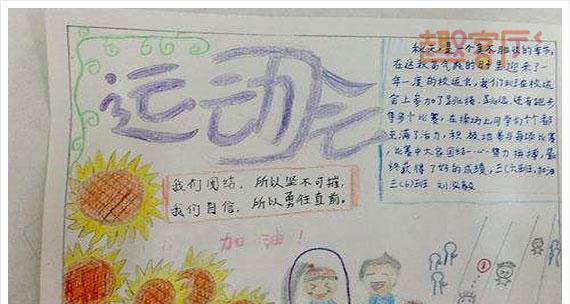 趣客厅
运动会
秋天,是一个美不胜收的季节,
在这秋高气爽的日子里迎来了一
年一度的校运会,我们班在校运
会上参加了跳绳、跳远、还有跑步
等多个比赛,在操场上同学们个个都
充满了活力,积极地参与每项比赛
,比赛中大家团结一心努力拼搏,最
终获得了好的成绩,三(六)班,加油
三(6)班
我们团结,所以坚不可摧,
我们自信,所以勇往直前。
加油!